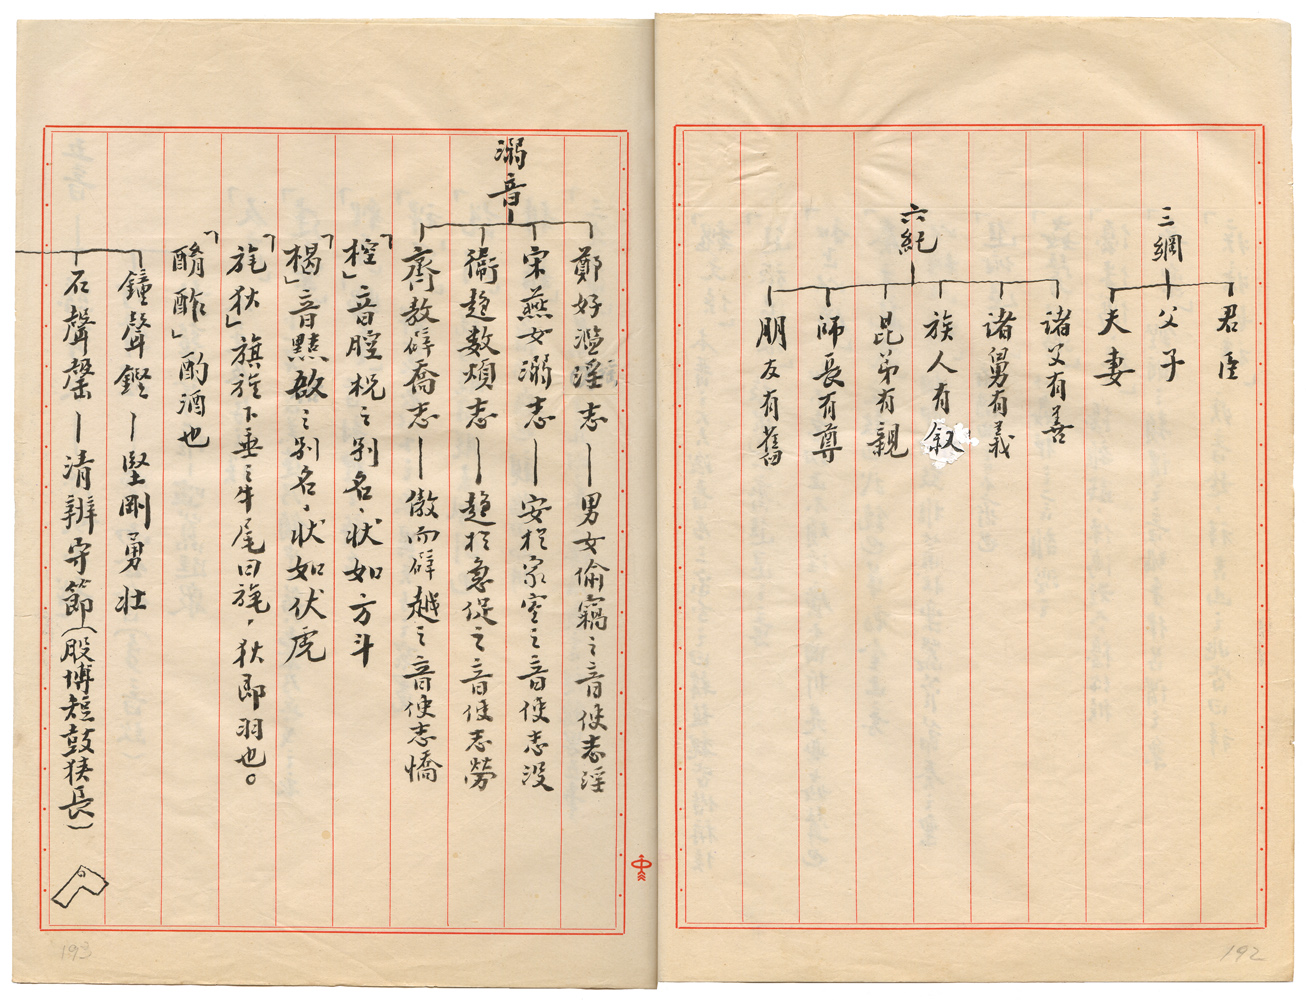 三綱
君臣
父子
夫妻
六紀
諸父有善
諸舅有義
族人有叙
昆弟有親
師長有尊
朋友有舊
192
溺音
鄭好濫淫志—男女偷竊之音使志淫
宋燕女溺志—安於家室之音使志没
衞趨数煩志—趨於急促之音使志勞
齊敖辟喬志—傲而辟越之音使志憍
「椌」音腔柷之别名、状如方斗
「楬」音黠敔之别名、状如伏虎
「旄狄」旗旌下垂之牛尾曰旄，狄即羽也。
「酳酢」酌酒也
鐘聲鏗—堅剛勇壮
石聲磬—清辨守節(股博短鼓狭長)
193